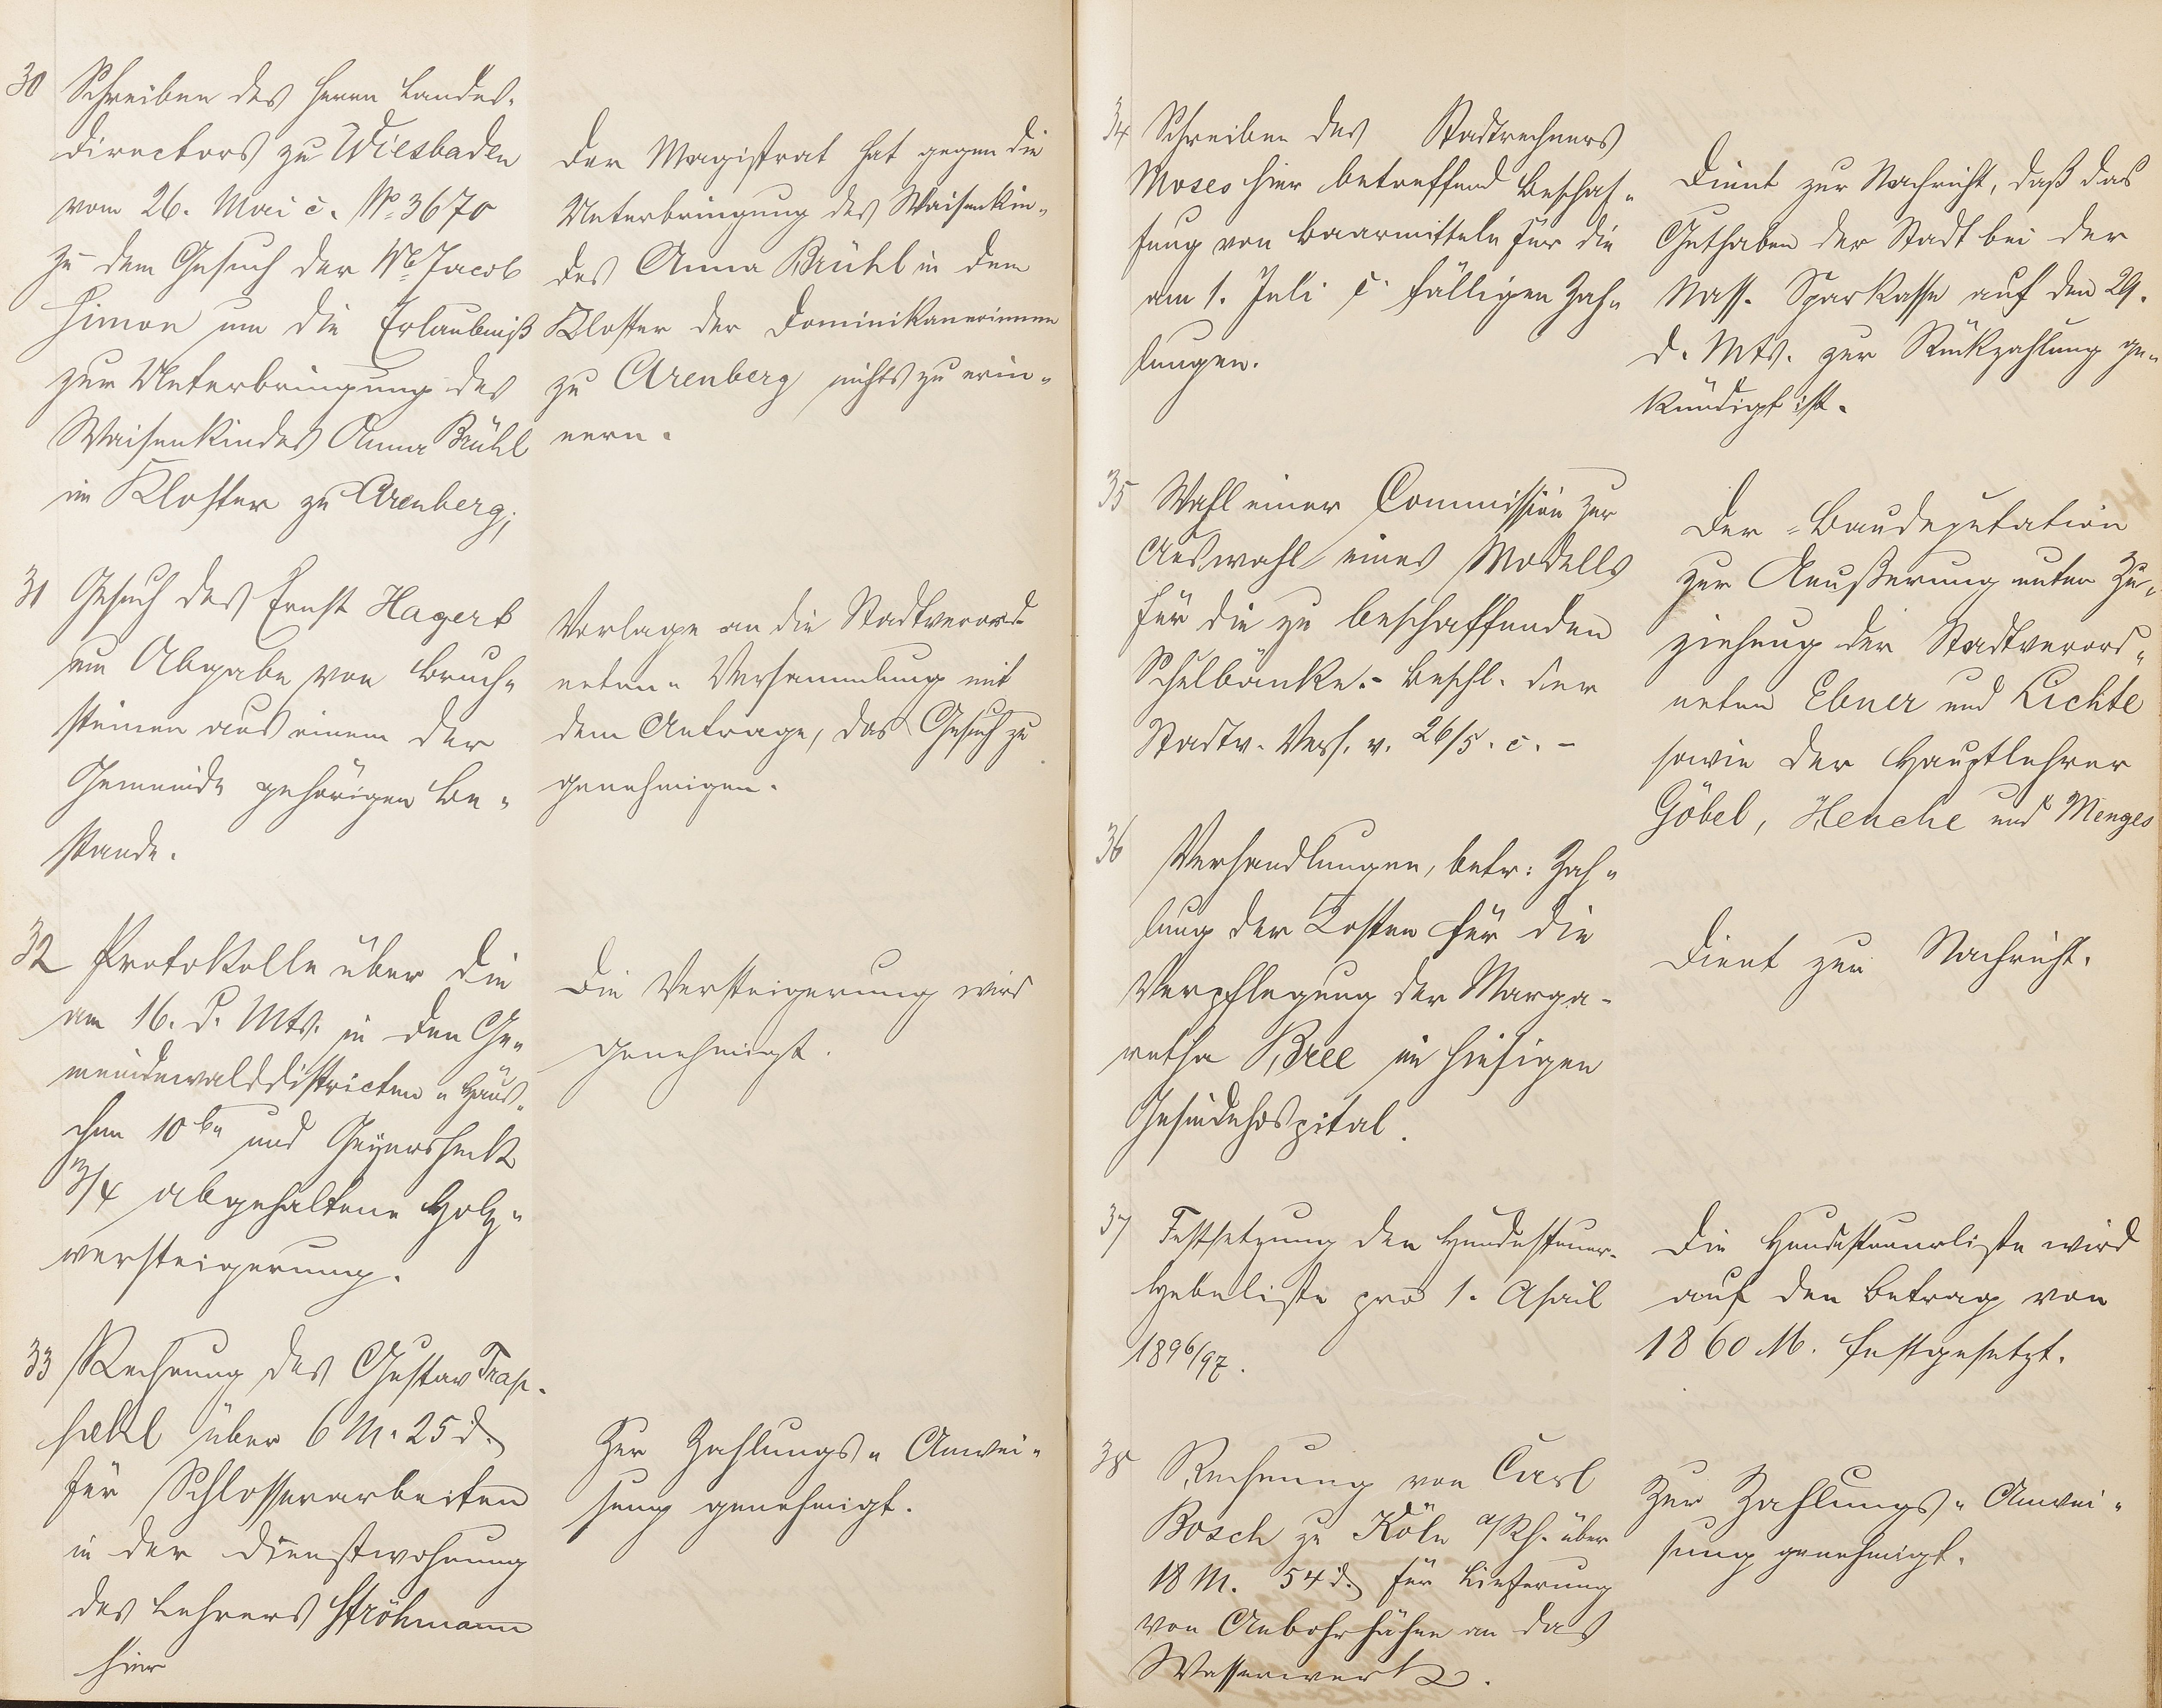 30 Schreiben des Herrn Landes-
directors zu Wiesbaden
vom 26. Mai c. No 3670
zu dem Gesuch der Wb Jacob
Simon um die Erlaubniß
zur Unterbringung des
Waisenkindes Anna Brühl
im Kloster zu Arenberg;
Der Magistrat hat gegen die
Unterbringung des Waisenkin-
des Anna Brühl in dem
Kloster der Dominikanerinnen
zu Arenberg nichts zu erin-
nern.
31 Gesuch des Ernst Hagert
um Abgabe von Bruch-
steinen aus einem der
Gemeinde gehörigen Be-
stande.
Vorlage an die Stadtverord-
neten-Versammlung mit
dem Antrage, das Gesuch zu
genehmigen.
32 Protokolle über die
am 16. d. Mts. in den Ge-
meindewalddistricten "Häus-
chen 10b" und Geyersheck
3/4 abgehaltene Holz-
versteigerung.
Die Versteigerung wird
genehmigt.
33 Rechnung des Gustav
über 6 M. 25 d.
für Schlosserarbeiten
in der Dienstwohnung
des Lehrers Ströhmann
hier
Zur Zahlungs-Anwei-
sung genehmigt.
34 Schreiben des Stadtrechners
Moses hier betreffend Beschaf-
fung von Baarmitteln für die
am 1. Juli c. fälligen Zah-
lungen.
Dient zur Nachricht, daß das
Guthaben der Stadt bei der
Nass. Sparkasse auf den 29.
d. Mts. zur Rückzahlung ge-
kündigt ist.
35 Wahl einer Commission zur
Auswahl eines Modells
für die zu beschaffenden
Schulbänke.- Beschl. der
Stadtv. Vers. v. 26/5. c. -
Der Baudeputation
zur Aeußerung unter Zu-
ziehung der Stadtverord-
neten Ebner und Lichte
sowie der Hauptlehrer
Göbel, Henche und Menges
36 Verhandlungen, betr: Zah-
lung der Kosten für die
Verpflegung der Marga-
retha Bree im hiesigen
Gesindehospital.
Dient zur Nachricht.
37 Festsetzung der Hundesteuer-
Hebeliste pro 1. April
1896/97.
Die Hundesteuerliste wird
auf den Betrag von
1860 M. festgesetzt.
38 Rechnung von Carl
Bosch zu Köln a/Rh. über
18 M. 54 d. für Lieferung
von Anbohrhähne an das
Wasserwerk.
Zur Zahlungs-Anwei-
sung genehmigt.